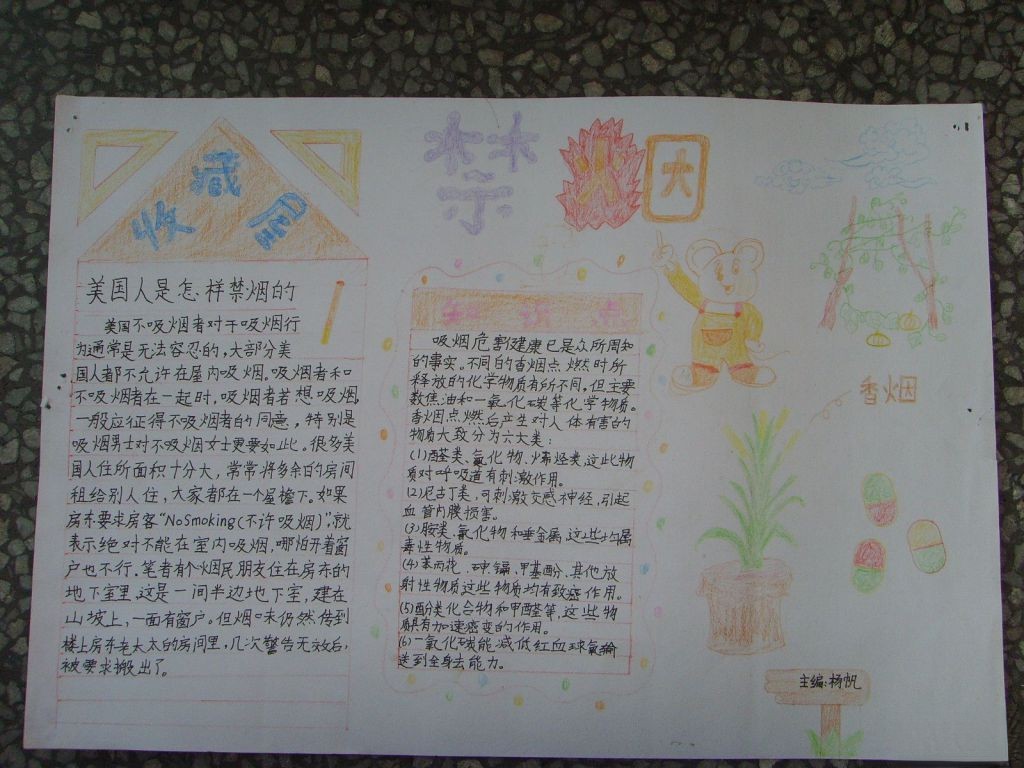 收藏屋
美国人是怎样禁烟的
美国不吸烟者对于吸烟行
为通常是无法容忍的,大部分美
国人都不允许在屋内吸烟。吸烟者和
不吸烟者在一起时,吸烟者若想吸烟,
一般应征得不吸烟者的同意,特别是
吸烟男士对不吸烟女士更要如此。很多美
国人住所面积十分大,常常将多余的房间
租给别人住,大家都在一个屋檐下。如果
房东要求房客“No Smoking(不许吸烟)”,就
表示绝对不能在室内吸烟,哪怕开着窗
户也不行。笔者有个烟民朋友住在房东的
地下室里,这是一间半边地下室,建在
山坡上,一面有窗户。但烟味仍然传到
楼上房东老太太的房间里,几次警告无效后,
被要求搬出了。
禁火大
知识点
吸烟危害健康已是众所周知
的事实。不同的香烟点燃时所
释放的化学物质有所不同,但主要
数焦油和一氧化碳等化学物质。
香烟点燃后产生对人体有害的
物质大致分为六大类:
(1)醛类、氮化物、烯烃类,这些物
质对呼吸道有刺激作用。
(2)尼古丁类,可刺激交感神经,引起
血管内膜损害。
(3)胺类、氰化物和重金属,这些均属
毒性物质。
(4)苯而芘、砷、镉、甲基酚、其他放
射性物质这些物质均有致癌作用。
(5)酚类化合物和甲醛等,这些物
质具有加速癌变的作用。
(6)一氧化碳能减低红血球氧输
送到全身去能力。
香烟
主编:杨帆